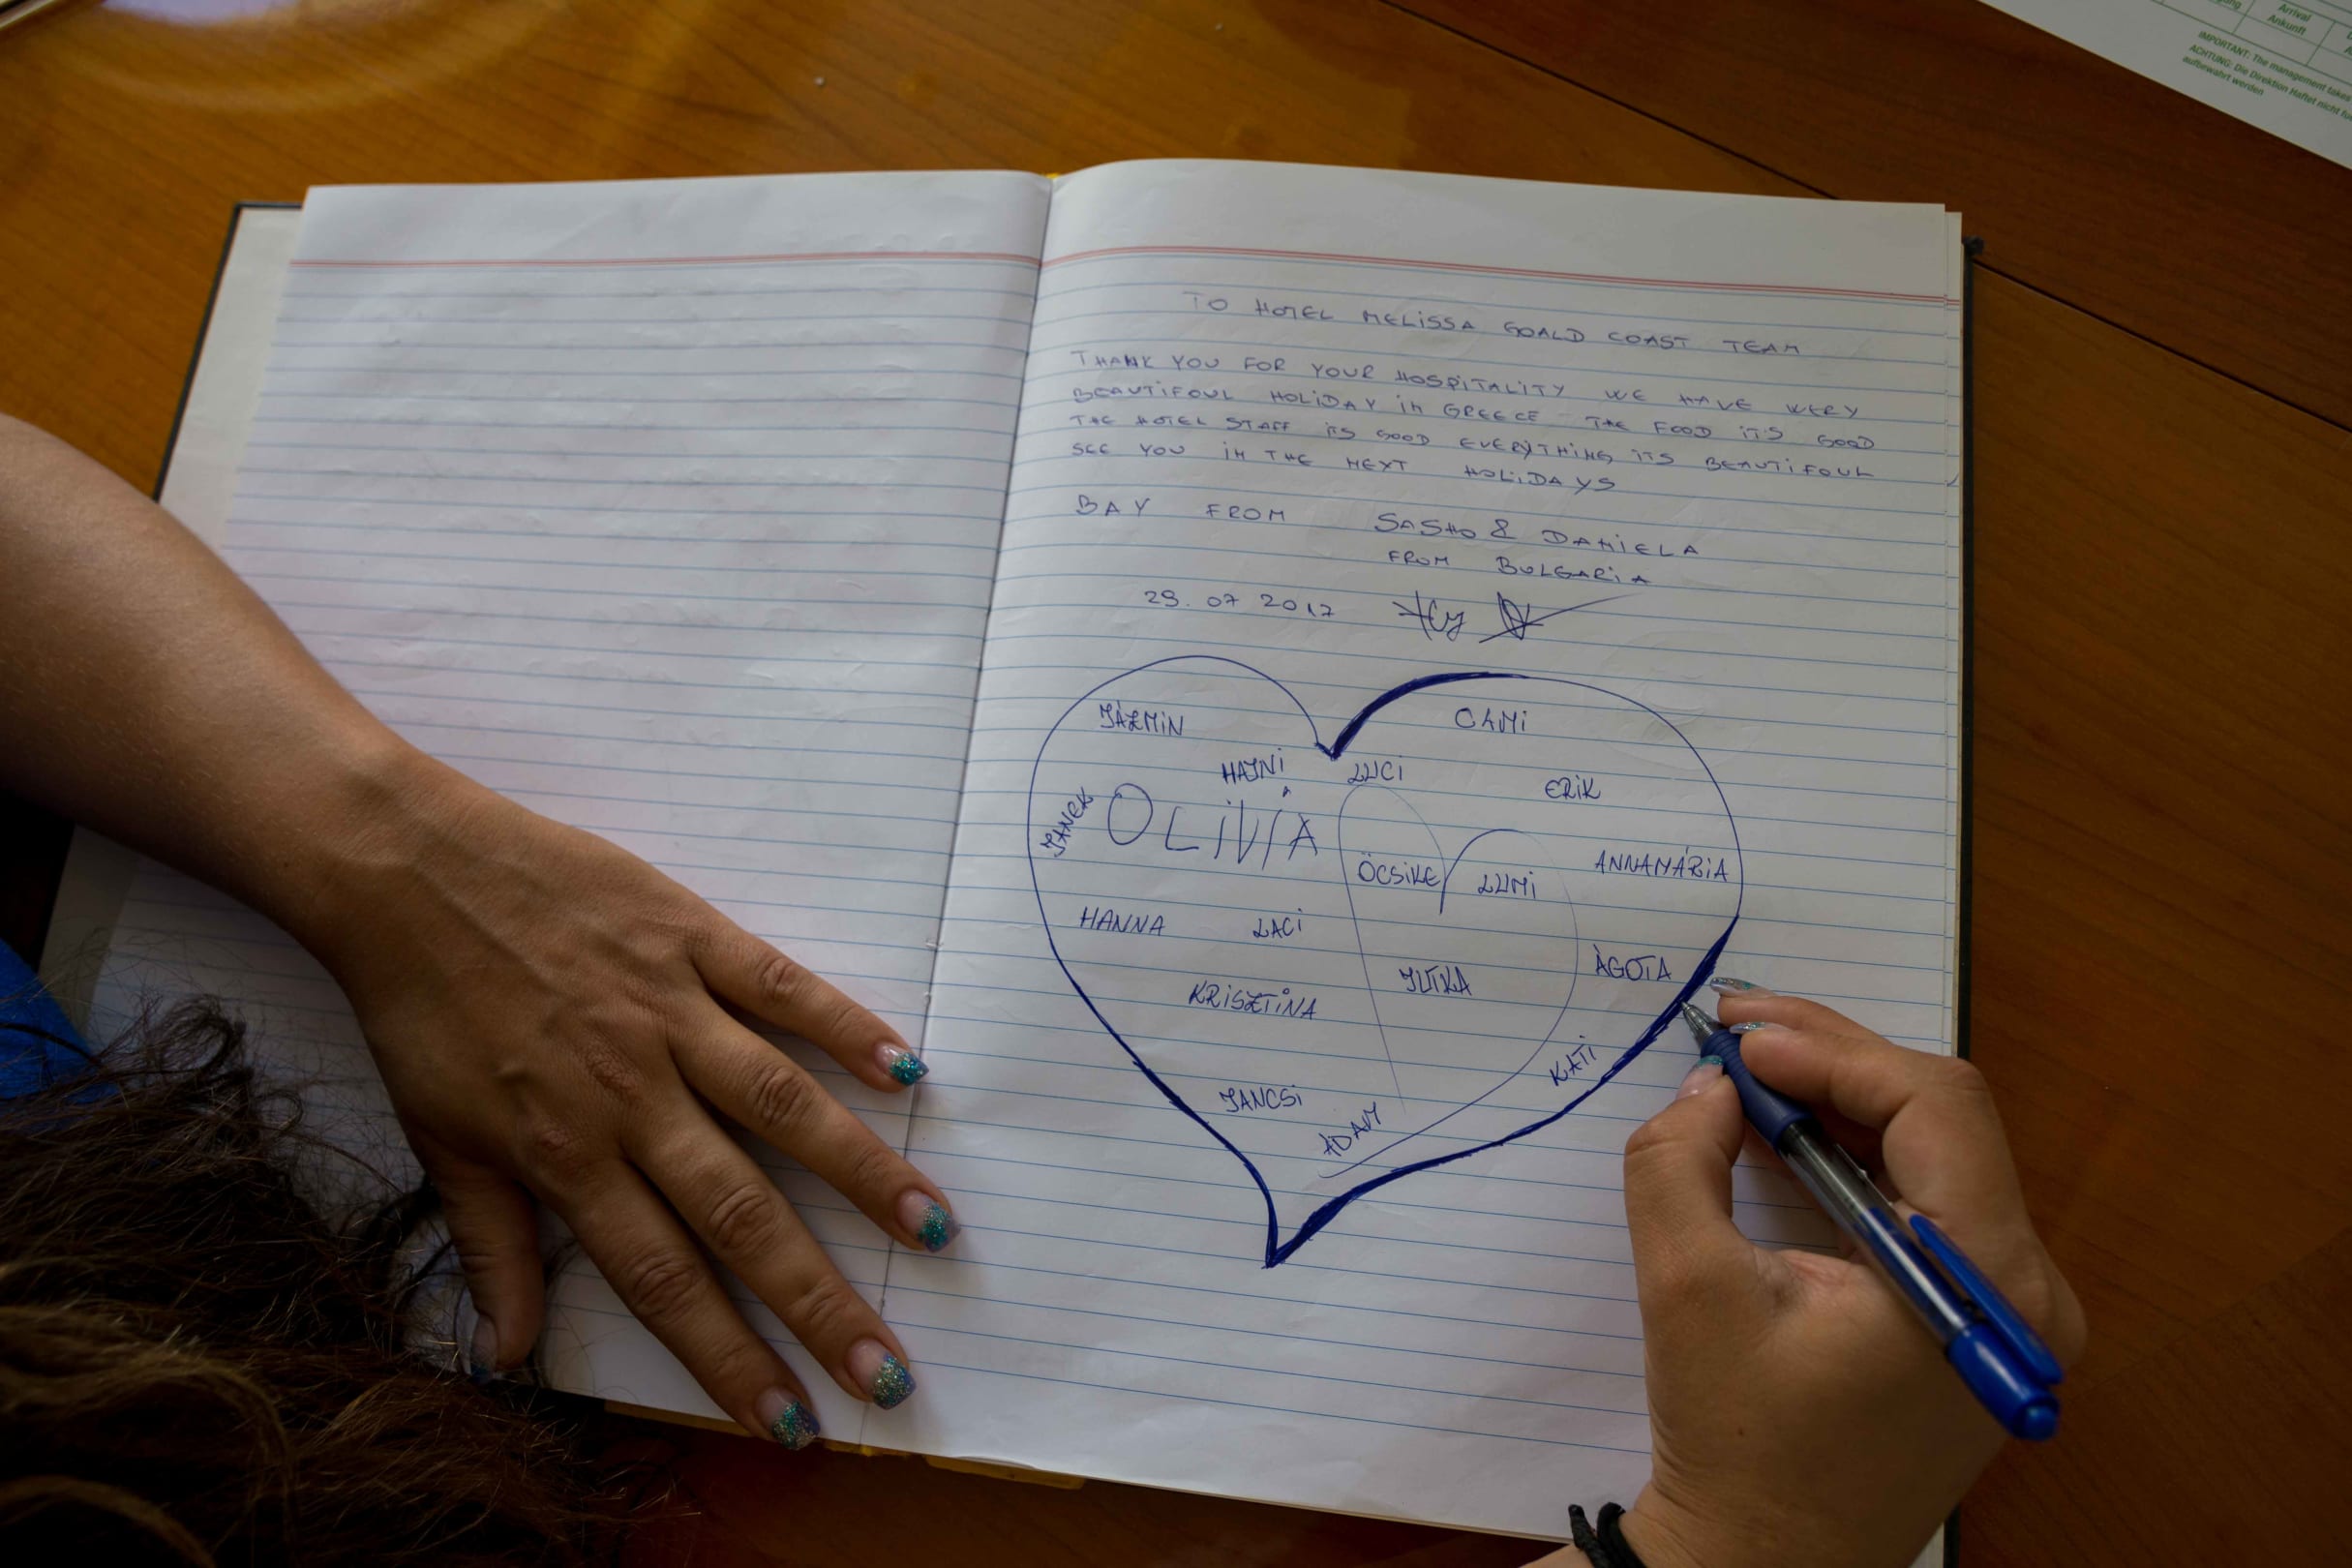 Arrival
Ankunft
IMPORTANT: The management takes
ACHTUNG: Die Direktion Haftet nicht für
aufbewahrt werden
TO HOTEL MELiSSA GOALD COAST TEAM
THANK YOU FOR YOUR HOSPiTALiTY WE HAVE WERY
BEAUTiFOUL HOLiDAY iN GREECE THE FOOD iTS GOOD
THE HOTEL STAFF iTS GOOD EVERYTHiNG iTS BEAUTiFOUL
SEE YOU iN THE NEXT HOLiDAYS
BAY FROM SASHO & DANiELA
FROM BULGARiA
29.07 2017
JÁZMiN
CAMi
HAJNi
LUCi
ERiK
JANEK
OLiVIA
ÖCSiKE
LUMi
ANNAMÁRiA
HANNA
LACi
JUTKA
ÀGOTA
KRiSZTiNA
KATi
JANCSi